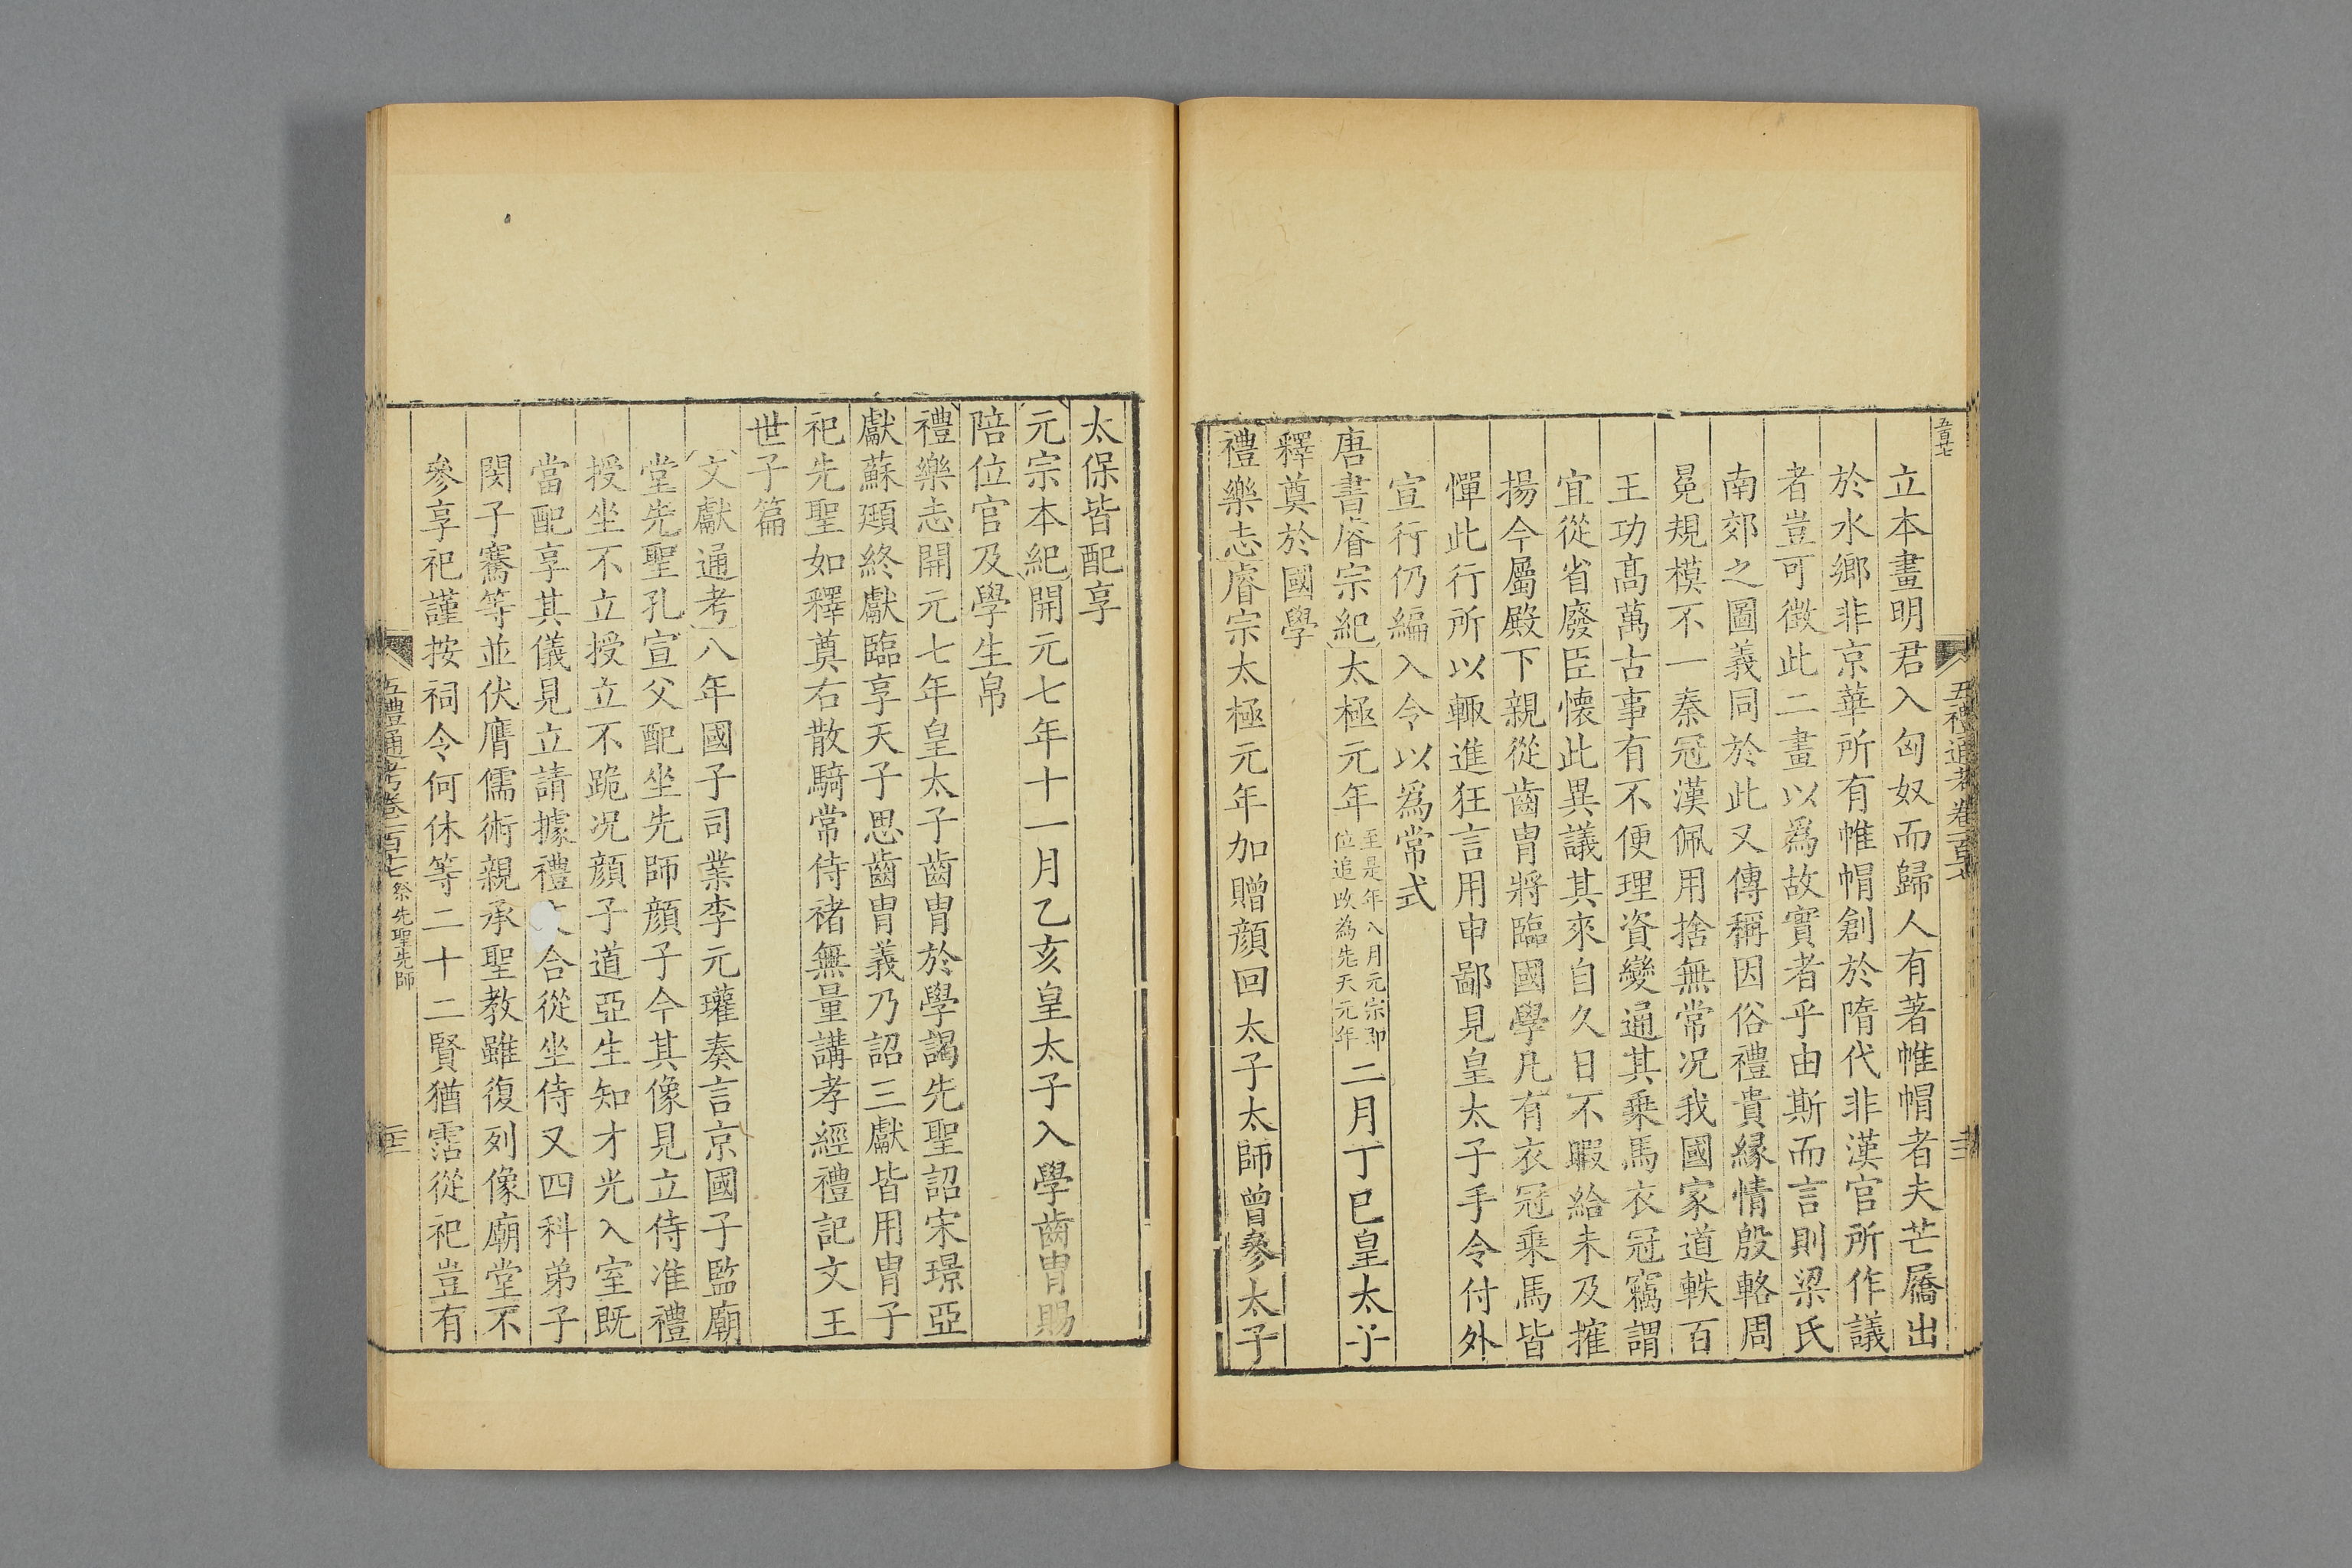 五百廿七
五禮通考卷一百十七
立本畫明君入匈奴而歸人有著帷帽者夫芒屩出
於水鄉非京華所有帷帽創於隋代非漢官所作議
者豈可徵此二畫以爲故實者乎由斯而言則梁氏
南郊之圖義同於此又傳稱因俗禮貴緣情殷輅周
冕規模不一秦冠漢佩用捨無常況我國家道軼百
王功高萬古事有不便理資變通其乗馬衣冠竊謂
宜從省廢臣懷此異議其來自久日不暇給未及搉
揚今屬殿下親從齒冑將臨國學凡有衣冠乗馬皆
憚此行所以輒進狂言用申鄙見皇太子手令付外
宣行仍編入令以爲常式
唐書睿宗紀太極元年至是年八月元宗即位追改為先天元年二月丁巳皇太子
釋奠於國學
禮樂志睿宗太極元年加贈顔回太子太師曾參太子
太保皆配享
元宗本紀開元七年十一月乙亥皇太子入學齒冑賜
陪位官及學生帛
禮樂志開元七年皇太子齒冑於學謁先聖詔宋璟亞
獻蘇頲終獻臨享天子思齒冑義乃詔三獻皆用冑子
祀先聖如釋奠右散騎常侍褚無量講孝經禮記文王
世子篇
文獻通考八年國子司業李元瓘奏言京國子監廟
堂先聖孔宣父配坐先師顔子今其像見立侍准禮
授坐不立授立不跪况顔子道亞生知才光入室既
當配享其儀見立請據禮合從坐侍又四科弟子
閔子騫等並伏膺儒術親承聖教雖復列像廟堂不
參享祀謹按祠令何休等二十二賢猶霑從祀豈有
五禮通考卷一百十七 祭先聖先師